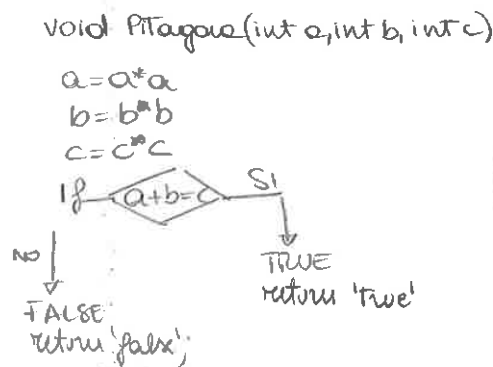 void Pitagora(int a, int b, int c)
a=a*a
b=b*b
c=c*c
If a+b=c SI
NO
TRUE
return 'True'
FALSE
return 'false';